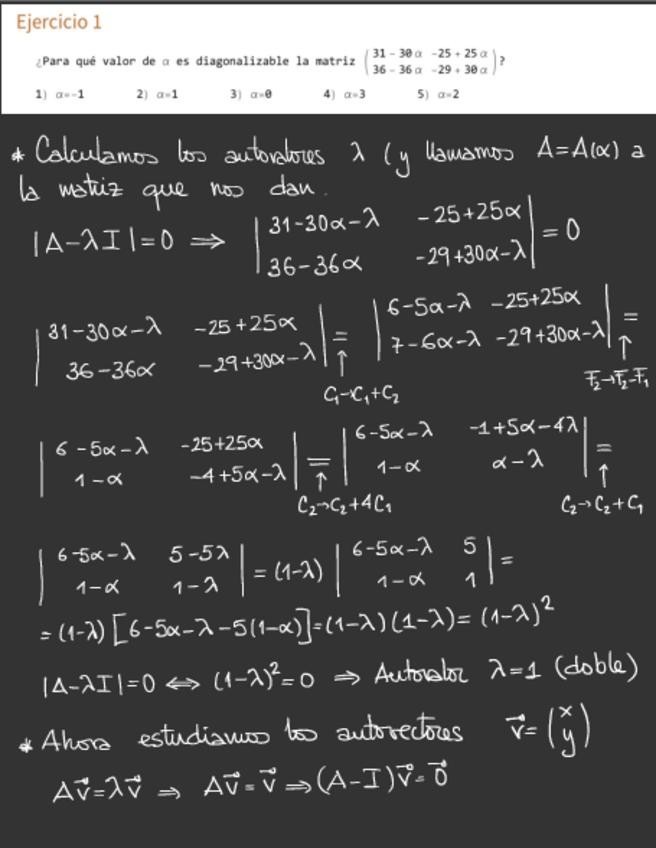 Ejercicio 1
¿Para qué valor de α es diagonalizable la matriz ( 31 - 30 α  -25 + 25 α ; 36 - 36 α  -29 + 30 α ) ?
1) α=-1  2) α=1  3) α=0  4) α=3  5) α=2
* Calculamos los autovalores λ (y llamamos A=A(α) a
la matriz que nos dan.
|A-λI|=0 ⇒ | 31-30α-λ  -25+25α ; 36-36α  -29+30α-λ | = 0
| 31-30α-λ  -25+25α ; 36-36α  -29+30α-λ | = | 6-5α-λ  -25+25α ; 7-6α-λ  -29+30α-λ | =
↑ C₁→C₁+C₂  ↑ F₂→F₂-F₁
| 6-5α-λ  -25+25α ; 1-α  -4+5α-λ | = | 6-5α-λ  -1+5α-4λ ; 1-α  α-λ | =
↑ C₂→C₂+4C₁  ↑ C₂→C₂+C₁
| 6-5α-λ  5-5λ ; 1-α  1-λ | = (1-λ) | 6-5α-λ  5 ; 1-α  1 | =
= (1-λ) [6-5α-λ-5(1-α)] = (1-λ)(1-λ) = (1-λ)²
|A-λI|=0 ⇔ (1-λ)²=0 ⇒ Autovalor λ=1 (doble)
* Ahora estudiamos los autovectores v⃗ = (x ; y)
Av⃗=λv⃗ ⇒ Av⃗=v⃗ ⇒ (A-I)v⃗=0⃗